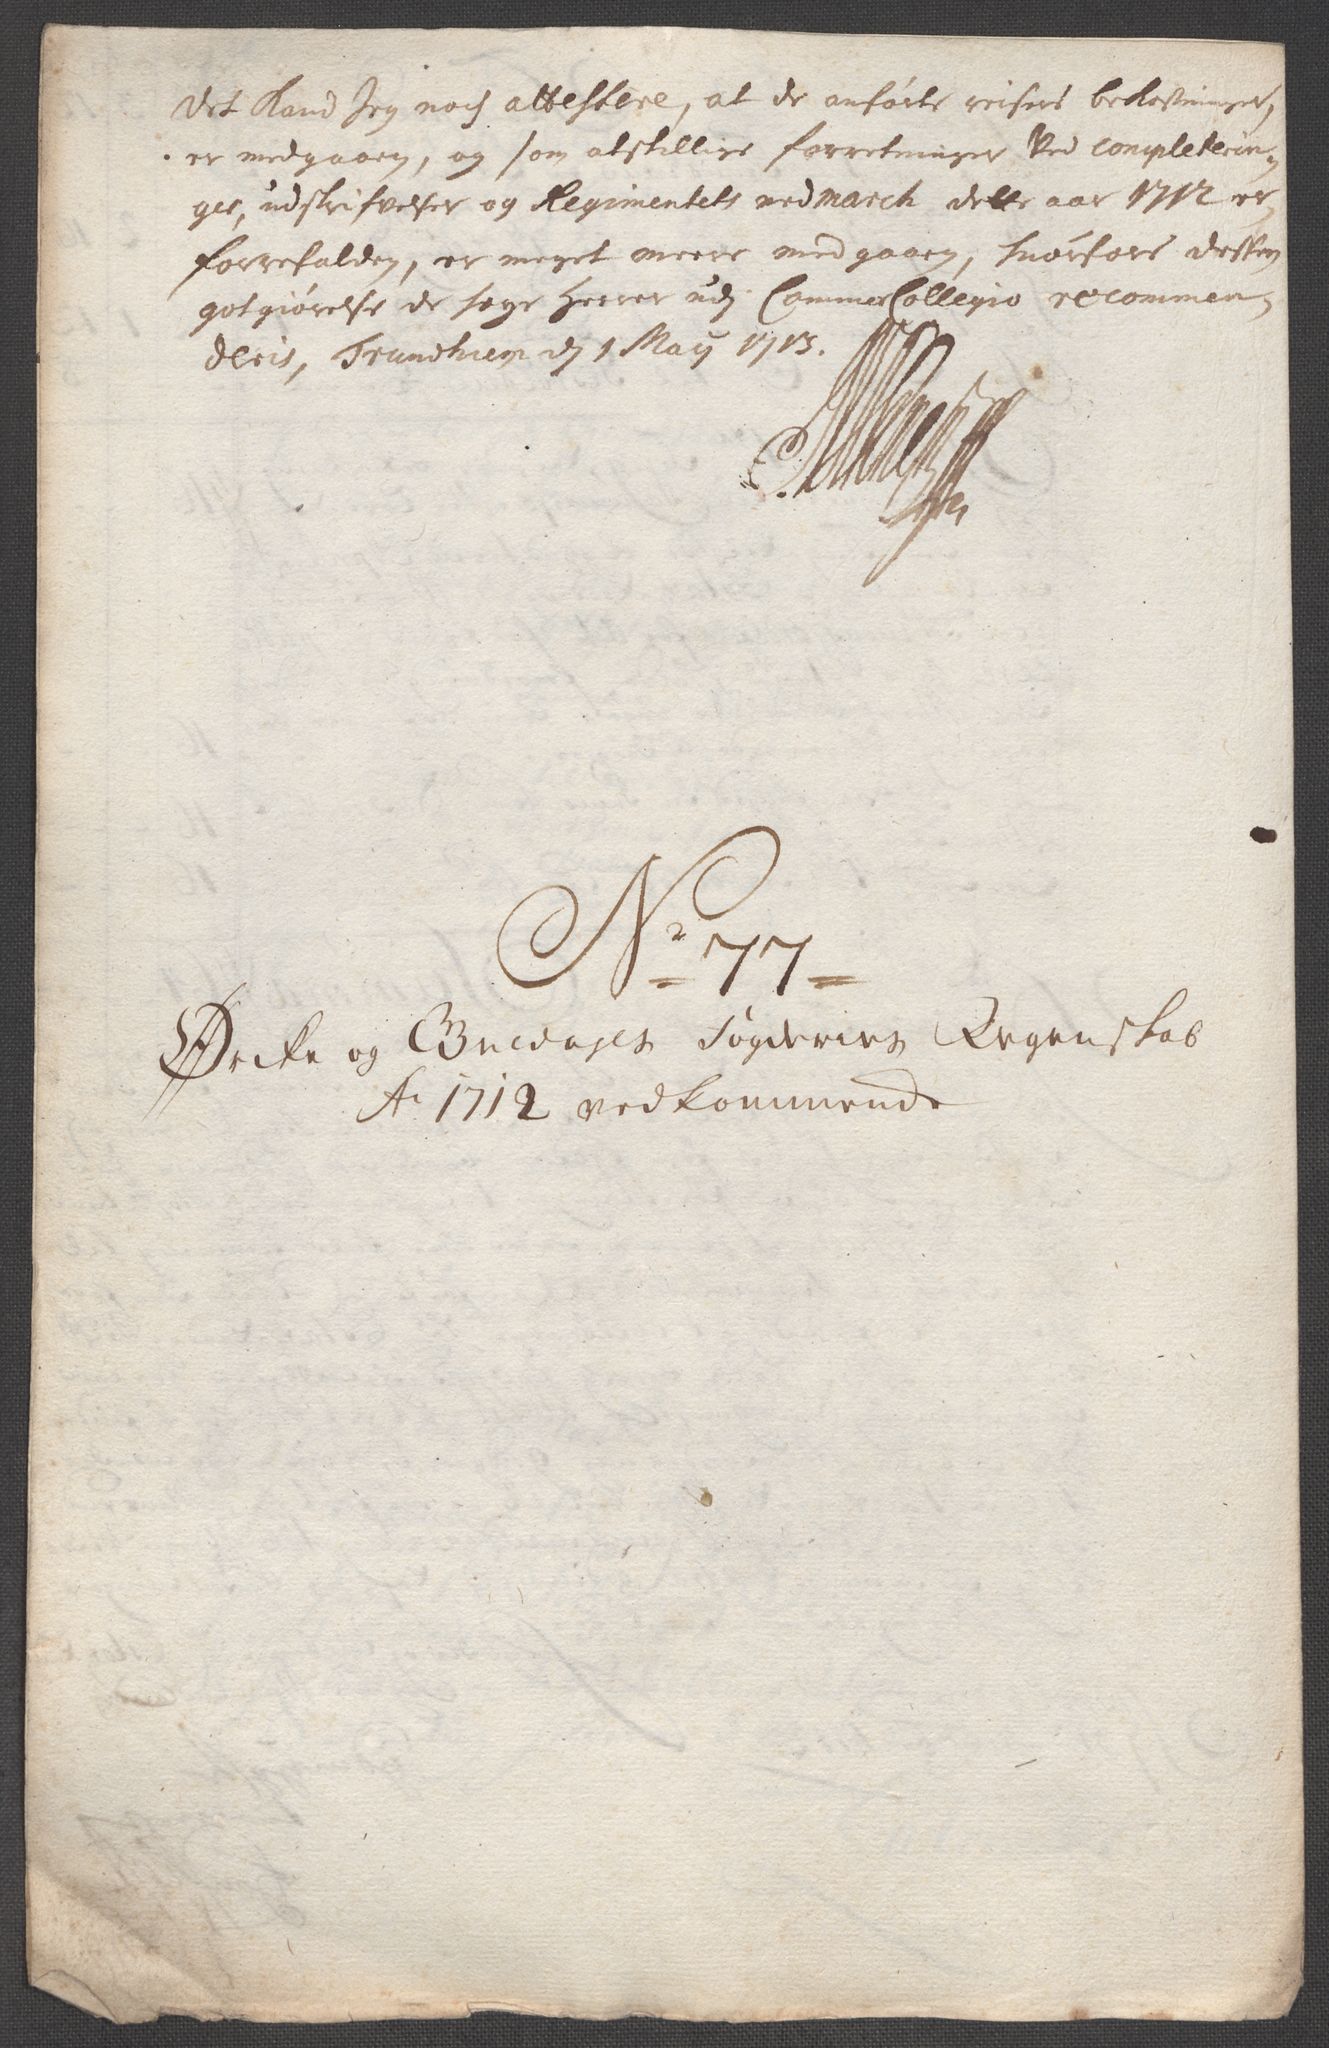 Det Kand Jeg noch attestere, at de anførte reisers bekostninger,
er medgaaen, og som atskillige forretninger Ved completerin¬
ger, udskrifvelser og Regimentets nedmarch dette aar 1712 er
forrefalden, er meget meere medgaaen, huorfore dessen
gotgiørelse de høye Herrer udj CammerCollegio recommen¬
deris, Trundhiem dj 1 Maij 1713.
No 77
Ørke og Guldahlens Fogderies Regenskab
Ao 1712 vedkommende